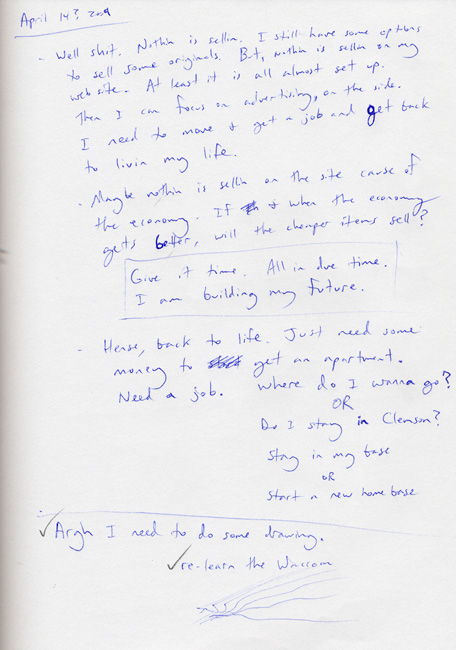 April 14? 2009
- Well shit. Nothin is sellin. I still have some options
to sell some originals. But, nothin is sellin on my
web site. At least it is all almost set up.
Then I can focus on advertising, on the side.
I need to move & get a job and get back
to livin my life.
- Maybe nothin is sellin on the site cause of
the economy. If & when the economy
gets better, will the cheaper items sell?
Give it time. All in due time.
I am building my future.
- Hense, back to life. Just need some
money to get an apartment.
Need a job. Where do I wanna go?
OR
Do I stay in Clemson?
Stay in my base
OR
Start a new home base
✓ Argh I need to do some drawing.
✓ re-learn the Waccom